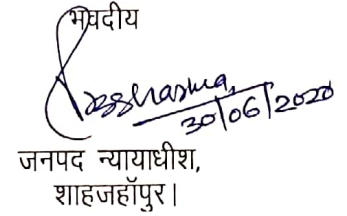 भवदीय
30/06/2020
जनपद न्यायाधीश,
शाहजहॉपुर।